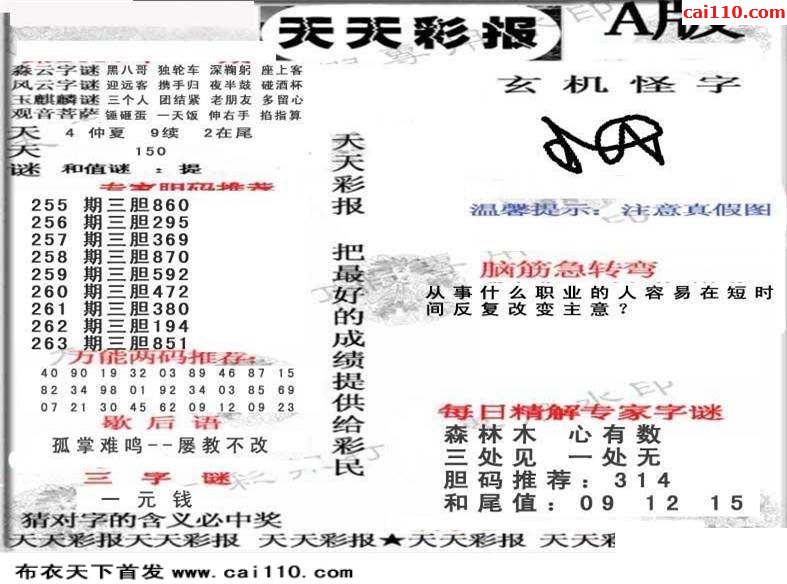 cai110.com
天天彩报
A版
森云字谜 黑八哥 独轮车 深鞠躬 座上客
风云字谜 迎远客 携手归 夜半鼓 碰酒杯
玉麒麟谜 三个人 团结紧 老朋友 多留心
观音菩萨 锤砸蛋 一天饭 伸右手 掐指算
天 4 仲夏 9续 2在尾
天 150
谜 和值谜 ：提
专家胆码推荐
255 期三胆860
256 期三胆295
257 期三胆369
258 期三胆870
259 期三胆592
260 期三胆472
261 期三胆380
262 期三胆194
263 期三胆851
万能两码推荐:
40 90 19 32 03 89 46 87 15
82 34 98 01 92 34 03 85 69
07 21 30 45 62 09 12 09 23
歇后语
孤掌难鸣--屡教不改
三字谜
一元钱
猜对字的含义必中奖
天天彩报 把最好的成绩提供给彩民
玄机怪字
温馨提示：注意真假图
脑筋急转弯
从事什么职业的人容易在短时
间反复改变主意？
每日精解专家字谜
森林木 心有数
三处见 一处无
胆码推荐：314
和尾值：09 12 15
天天彩报天天彩报 天天彩报★天天彩报 天天彩
布衣天下首发 www.cai110.com